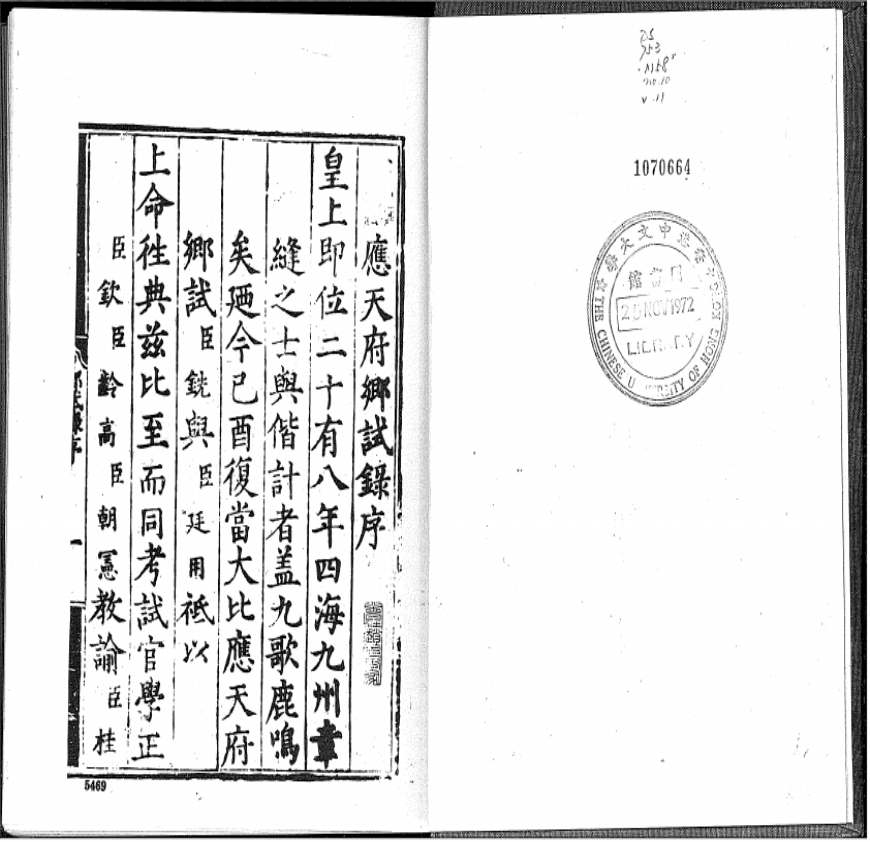 DS
753
.M58
v.11
1070664
中文大學
THE CHINESE UNIVERSITY OF HONG KONG
圖書館
25 NOV 1972
LIBRARY
應天府鄉試錄序
皇上即位二十有八年四海九州章
縫之士與偕計者盖九歌鹿鳴
矣廼今己酉復當大比應天府
鄉試臣銑與臣廷用祗以
上命徃典兹比至而同考試官學正
臣欽臣齡高臣朝憲教諭臣桂
5469